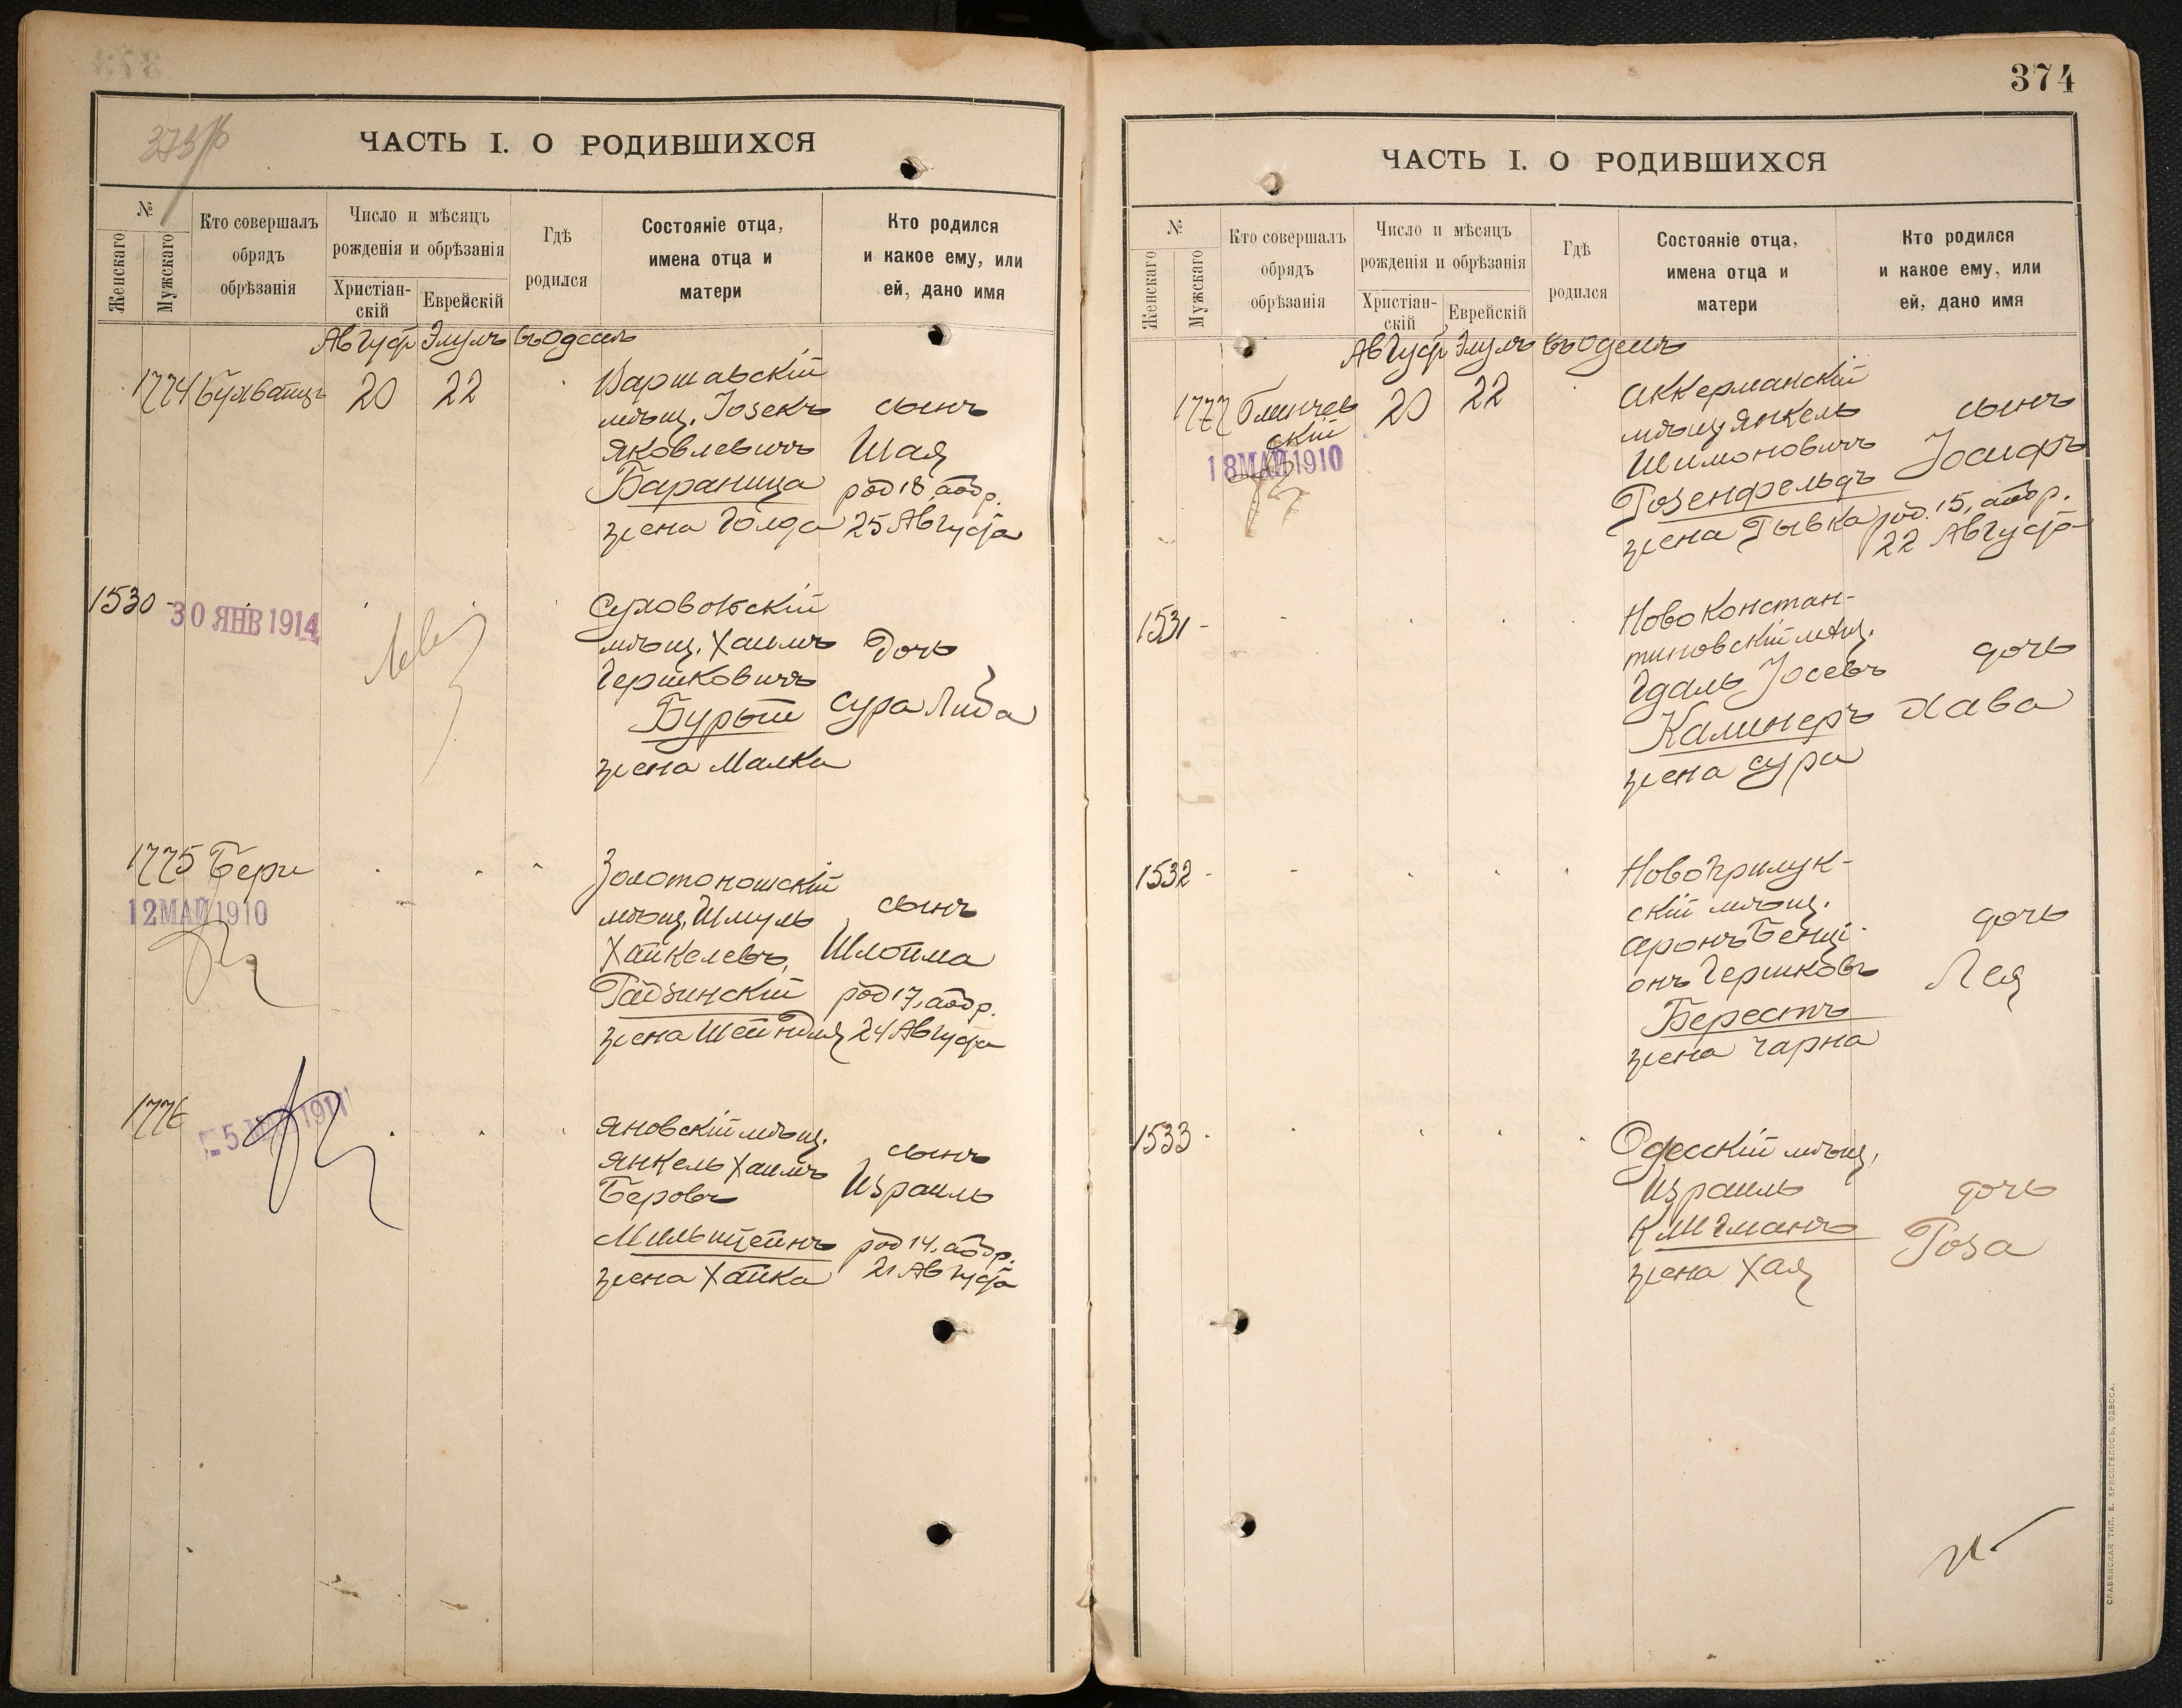 ЧАСТЬ I. О РОДИВШИХСЯ
№
Женскаго
Мужскаго
Кто совершалъ
обрядъ
обрѣзанія
Число и мѣсяцъ
рожденія и обрѣзанія
Христіан-
скій
Еврейскій
Гдѣ
родился
Состояніе отца,
имена отца и
матери
Кто родился
и какое ему, или
ей, дано имя
Август Элулъ въ Одессѣ
1774
20
22
Варшавскій
мѣщ. Іосекъ
Яковлевичъ
Бараница
жена Голда
сынъ
Шая
род 18, аобр.
25 Августа
1530 -
30 ЯНВ 1914
мѣщ. Хаимъ
Гершковичъ
Бурыш
жена Малка
Дочь
Сура Либа
1775 Бери
12 МАЙ 1910
Золотоношскій
мѣщ. Шмуль
Хайкелевъ,
жена Шейндля
сынъ
Шлойма
род 17, аобр.
24 Августа
1776
Яновскій мѣщ.
Янкель Хаимъ
Беровъ
Мильштейнъ
жена Хайка
сынъ
Израиль
род 14, аобр.
21 Августа
374
ЧАСТЬ I. О РОДИВШИХСЯ
№
Женскаго
Мужскаго
Кто совершалъ
обрядъ
обрѣзанія
Число и мѣсяцъ
рожденія и обрѣзанія
Христіан-
скій
Еврейскій
Гдѣ
родился
Состояніе отца,
имена отца и
матери
Кто родился
и какое ему, или
ей, дано имя
Август Элулъ въ Одессѣ
1777
20
22
18 МАЙ 1910
Аккерманскій
мѣщ Янкель
Шимоновичъ
Розенфельдъ
жена Рывка
сынъ
Іосифъ
род. 15, аобр.
22 Августа
1531 -
Новоконстан-
тиновскій мѣщ.
Гдаль Іосевъ
Калинеръ
жена Сура
дочь
Хава
1532 -
Новоприлук-
скій мѣщ.
Аронъ Бенці-
онъ Гершковъ
Берестъ
жена Чарна
дочь
Лея
1533 -
Одесскій мѣщ,
Израиль
Клигманъ
жена Хая
дочь
Роза
СЛАВЯНСКАЯ ТИП. Е. ХРИСОГЕЛОСЪ, ОДЕССА.